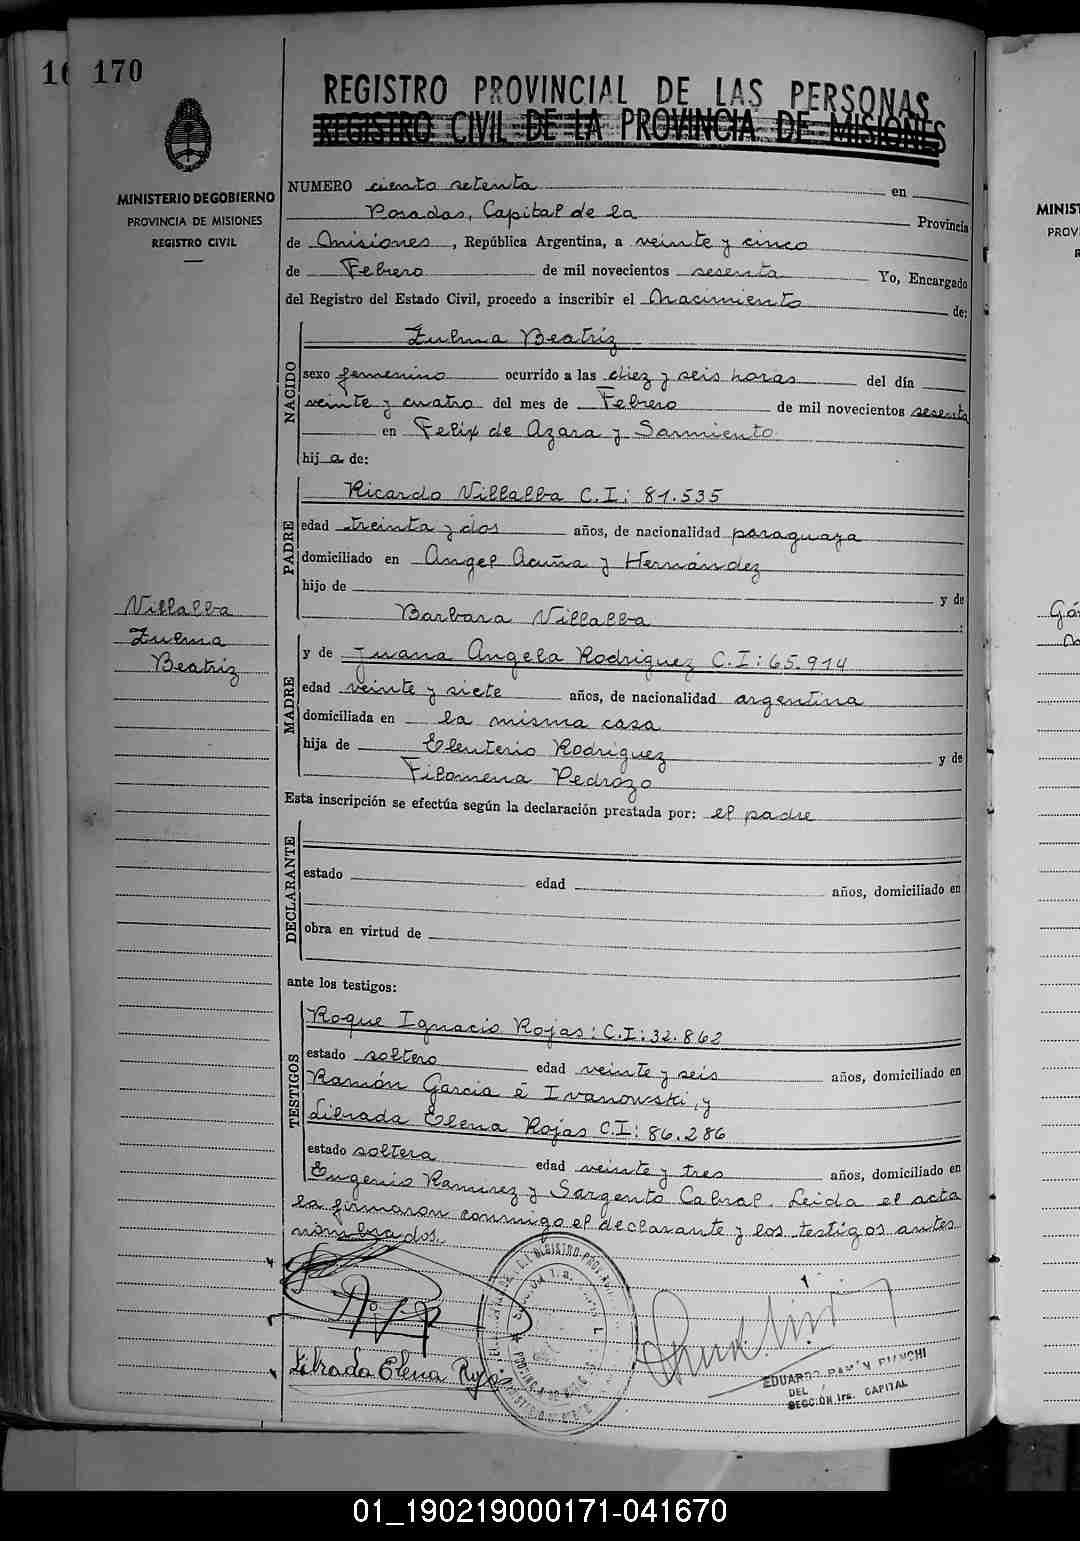 170
REGISTRO PROVINCIAL DE LAS PERSONAS
REGISTRO CIVIL DE LA PROVINCIA DE MISIONES
MINISTERIO DE GOBIERNO
PROVINCIA DE MISIONES
REGISTRO CIVIL
NUMERO ciento setenta en
Posadas, Capital de la Provincia
de Misiones, República Argentina, a veinte y cinco
de Febrero de mil novecientos sesenta Yo, Encargado
del Registro del Estado Civil, procedo a inscribir el Nacimiento de:
NACIDO
Zulma Beatriz
sexo femenino ocurrido a las diez y seis horas del día
veinte y cuatro del mes de Febrero de mil novecientos sesenta
en Felix de Azara y Sarmiento
hij a de:
PADRE
Ricardo Villalba C.I: 81.535
edad treinta y dos años, de nacionalidad paraguaya
domiciliado en Angel Acuña y Hernández
hijo de y de
Barbara Villalba
Villalba
Zulma
Beatriz
MADRE
y de Juana Angela Rodriguez C.I: 65.914
edad veinte y siete años, de nacionalidad argentina
domiciliada en la misma casa
hija de Eleuterio Rodriguez y de
Filomena Pedrozo
Esta inscripción se efectúa según la declaración prestada por: el padre
DECLARANTE
estado edad años, domiciliado en
obra en virtud de
ante los testigos:
TESTIGOS
Roque Ignacio Rojas: C.I: 32.862
estado soltero edad veinte y seis años, domiciliado en
Ramón Garcia é Ivanowski, y
Librada Elena Rojas C.I: 86.286
estado soltera edad veinte y tres años, domiciliado en
Eugenio Ramirez y Sargento Cabral. Leida el acta
la firmaron conmigo el declarante y los testigos antes
nombrados.
Librada Elena Rojas
EDUARDO RAMÓN BIANCHI
DEL
SECCIÓN 1ra. CAPITAL
MINIST
PROV
01_190219000171-041670